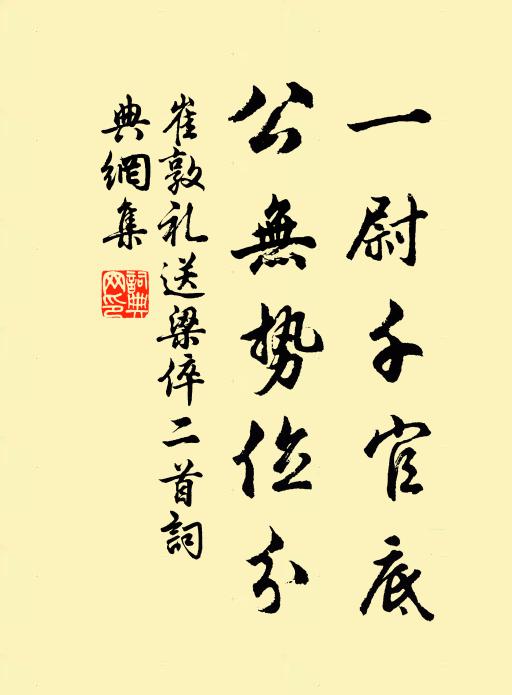 一尉千官底
公無势位分
崔敦礼送梁倅二首詞
典網集
詞典網印